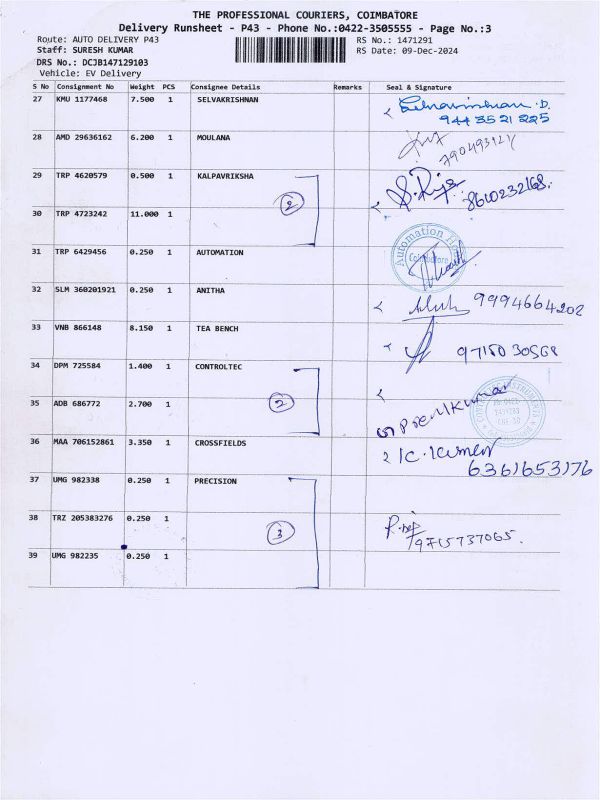 THE PROFESSIONAL COURIERS, COIMBATORE
Delivery Runsheet - P43 - Phone No.:0422-3505555 - Page No.:3
Route: AUTO DELIVERY P43
RS No.: 1471291
Staff: SURESH KUMAR
RS Date: 09-Dec-2024
DRS No.: DCJB147129103
Vehicle: EV Delivery
S No Consignment No Weight PCS Consignee Details Remarks Seal & Signature
27 KMU 1177468 7.500 1 SELVAKRISHNAN
9443521225
28 AMD 29636162 6.200 1 MOULANA
29 TRP 4620579 0.500 1 KALPAVRIKSHA
2
8610232168.
30 TRP 4723242 11.000 1
31 TRP 6429456 0.250 1 AUTOMATION
Automation
Coimbatore
32 SLM 360201921 0.250 1 ANITHA
9994664202
33 VNB 866148 8.150 1 TEA BENCH
9715030568
34 DPM 725584 1.400 1 CONTROLTEC
2
35 ADB 686772 2.700 1
Premkumar
36 MAA 706152861 3.350 1 CROSSFIELDS
K. Kumar
6361653176
37 UMG 982338 0.250 1 PRECISION
38 TRZ 205383276 0.250 1
3
9715737065.
39 UMG 982235 0.250 1